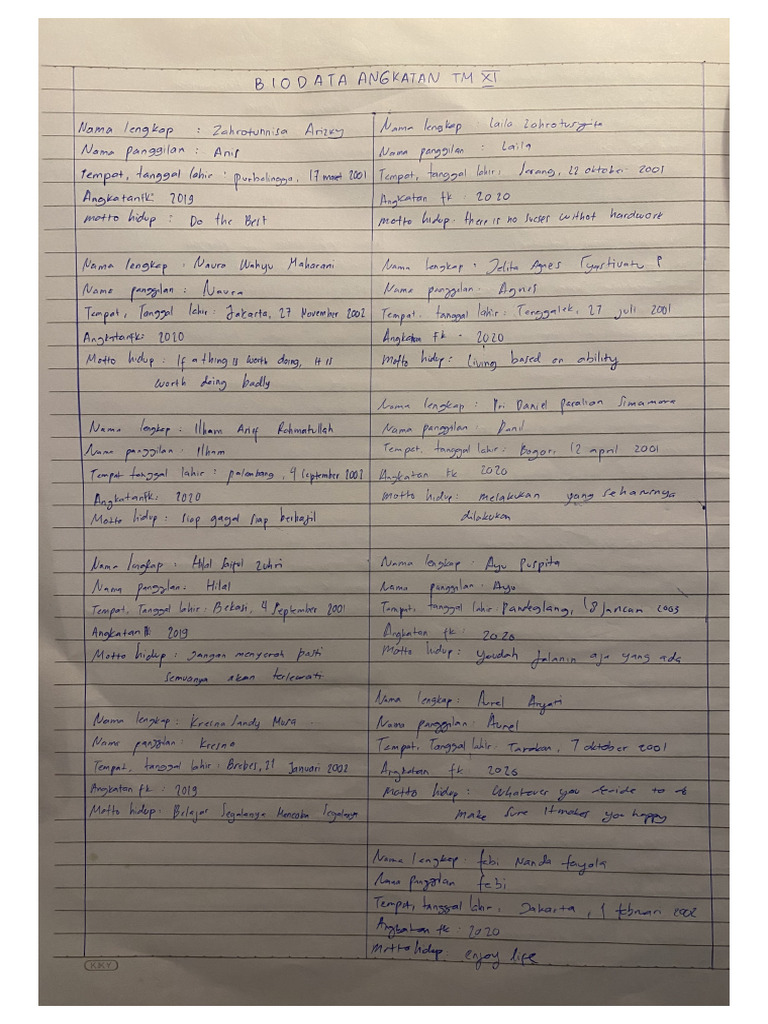 BIODATA ANGKATAN TM XI
Nama lengkap : Zahrotunnisa Arizky
Nama panggilan : Anis
Tempat, tanggal lahir : purbalingga, 17 maret 2001
Angkatan fk: 2019
motto hidup : Do the Best
Nama lengkap : Naura Wahyu Maharani
Nama panggilan : Naura
Tempat, Tanggal lahir : Jakarta, 27 November 2002
Angkatan fk: 2020
Motto hidup : If a thing is worth doing, it is
worth doing badly
Nama lengkap : Ilham Arief Rahmatullah
Nama panggilan : Ilham
Tempat tanggal lahir : palembang, 9 September 2002
Angkatan fk: 2020
Motto hidup : siap gagal siap berhasil
Nama lengkap : Hilal Saiful Zuhri
Nama panggilan : Hilal
Tempat, Tanggal lahir : Bekasi, 4 September 2001
Angkatan fk 2019
Motto hidup : Jangan menyerah pasti
semuanya akan terlewati
Nama lengkap : Kresna Musa
Nama panggilan : Kresna
Tempat, tanggal lahir : Brebes, 21 Januari 2002
Angkatan fk : 2019
Motto hidup : Belajar Segalanya Mencoba Segalanya
Nama lengkap : Laila
Nama panggilan : Laila
Tempat, tanggal lahir : Serang, 22 oktober 2001
Angkatan fk : 2020
motto hidup : there is no sucses withot hardwork
Nama lengkap : Jelita Agnes P
Nama panggilan : Agnes
Tempat, tanggal lahir : Trenggalek, 27 juli 2001
Angkatan fk - 2020
Motto hidup : living based on ability
Nama lengkap : Pri Daniel Paralian Simamora
Nama panggilan : Danil
Tempat, tanggal lahir : Bogor, 12 april 2001
Angkatan fk 2020
motto hidup : melakukan yang seharusnya
dilakukan
Nama lengkap : Ayu puspita
Nama panggilan : Ayu
Tempat, tanggal lahir : Pandeglang, 18 januari 2003
Angkatan fk : 2020
Motto hidup : yaudah jalanin aja yang ada
Nama lengkap : Aurel Anjari
Nama panggilan : Aurel
Tempat, Tanggal lahir : Tarakan, 7 oktober 2001
Angkatan fk : 2020
Motto hidup : Whatever you decide to do
make sure it makes you happy
Nama lengkap : febi Nanda fayola
Nama panggilan febi
Tempat, tanggal lahir, Jakarta, 1 februari 2002
Angkatan fk : 2020
Motto hidup : enjoy life
KKY